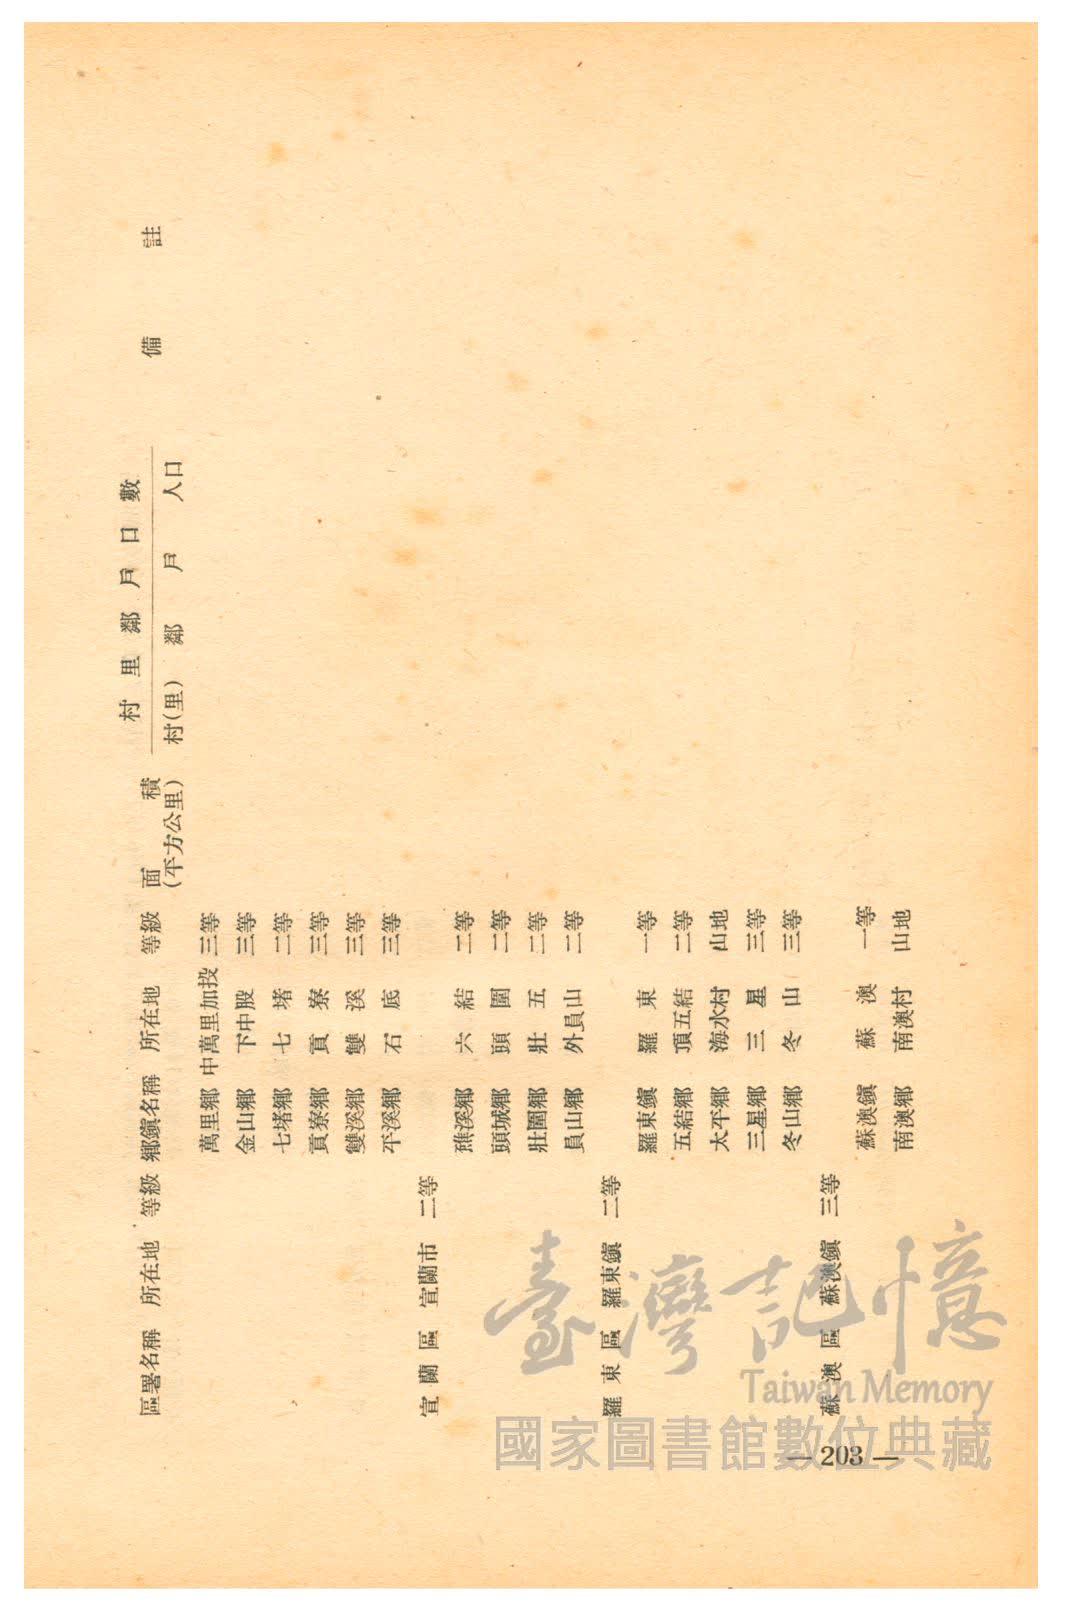 區署名稱 所在地 等級 鄉鎭名稱 所在地 等級 面積 村里鄰戶口數 備註
(平方公里) 村(里) 鄰 戶 人口
萬里鄉 中萬里加投 三等
金山鄉 下中股 三等
七堵鄉 七堵 二等
貢寮鄉 貢寮 三等
雙溪鄉 雙溪 三等
平溪鄉 石底 三等
宜蘭區 宜蘭市 二等
礁溪鄉 六結 二等
頭城鄉 頭圍 二等
壯圍鄉 壯五 二等
員山鄉 外員山 二等
羅東區 羅東鎭 二等
羅東鎭 羅東 一等
五結鄉 頂五結 二等
太平鄉 濁水村 山地
三星鄉 三星 三等
冬山鄉 冬山 三等
蘇澳區 蘇澳鎭 三等
蘇澳鎭 蘇澳 一等
南澳鄉 南澳村 山地
— 203 —
臺灣記憶
Taiwan Memory
國家圖書館數位典藏